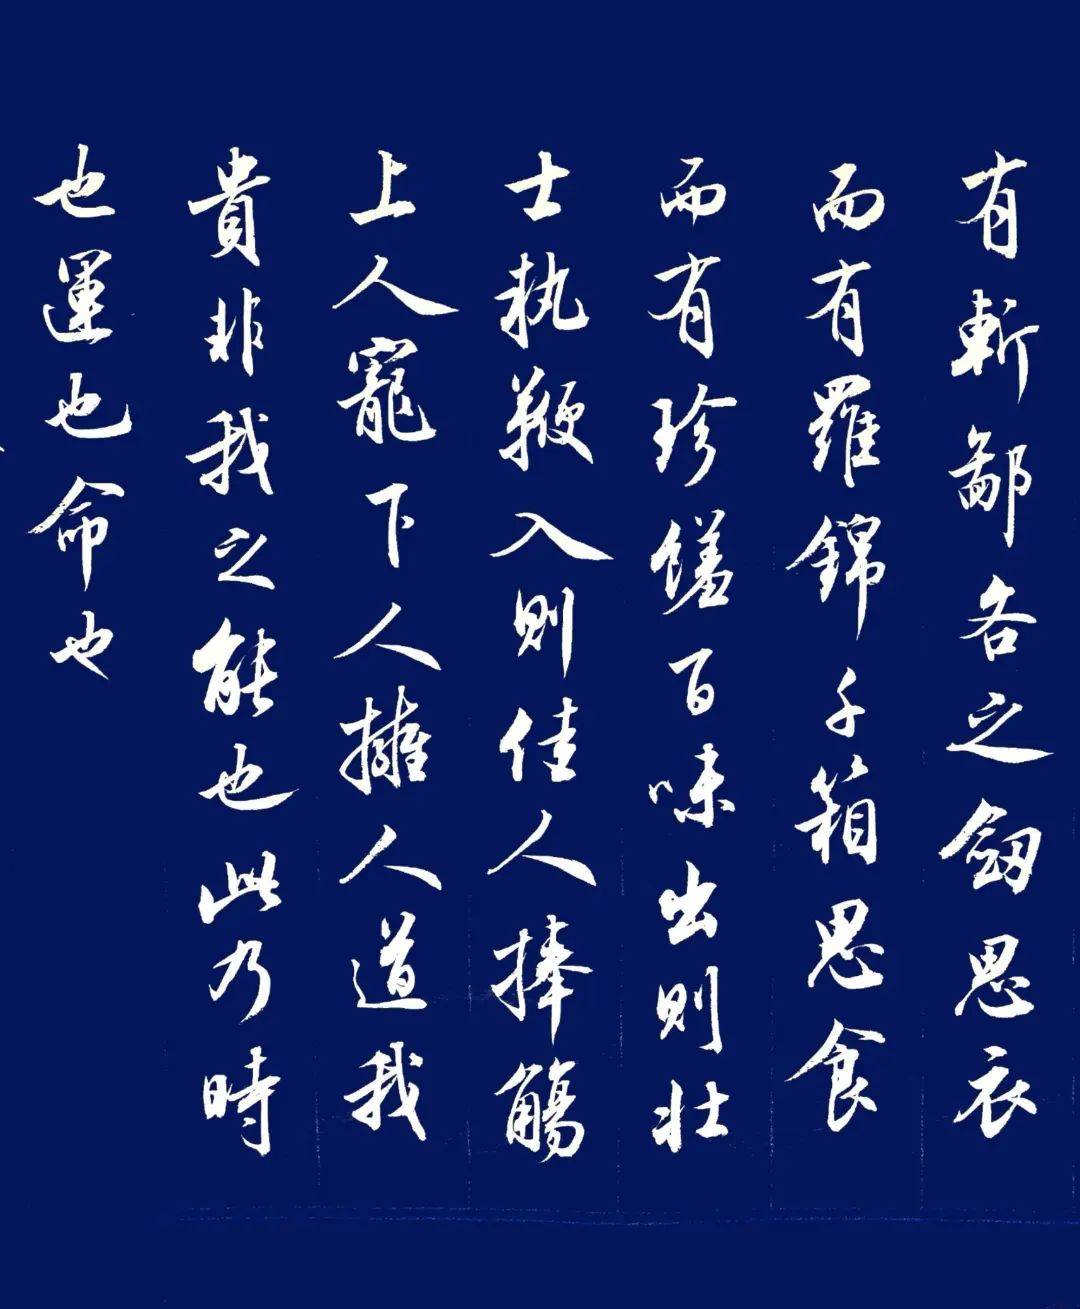 有斬鄙各之劔思衣
而有羅錦千箱思食
而有珍饈百味出則壯
士執鞭入則佳人捧觴
上人寵下人擁人道我
貴非我之能也此乃時
也運也命也